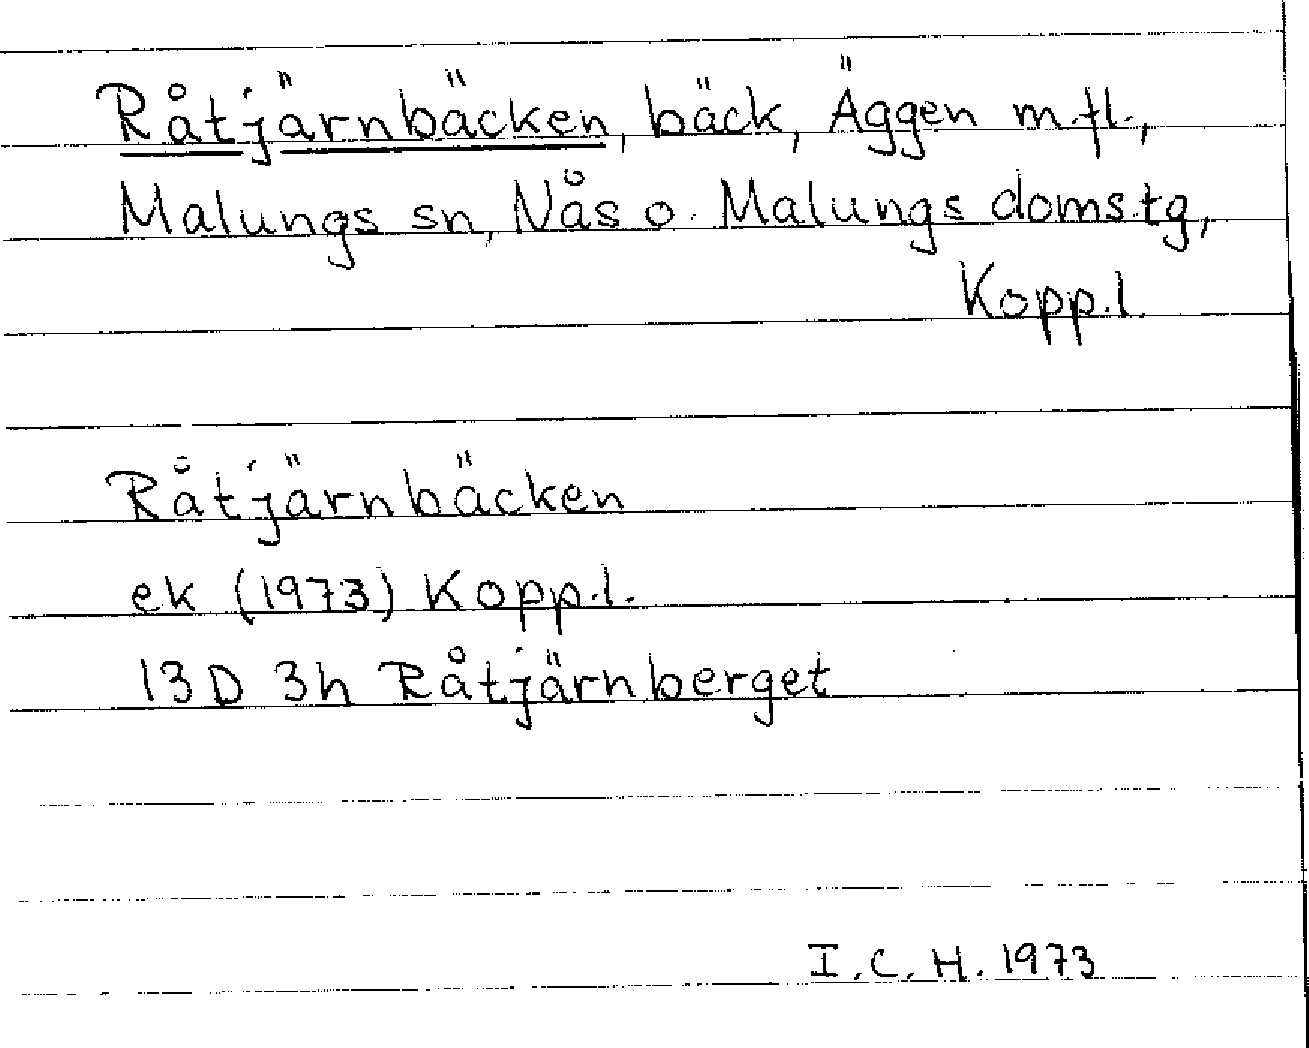 Råtjärnbäcken, bäck, Äggen m.fl.,
Malungs sn, Nås o. Malungs domstg,
Kopp.l.
Råtjärnbäcken
ek (1973) Kopp.l.
13D 3h Råtjärnberget
I.C.H. 1973